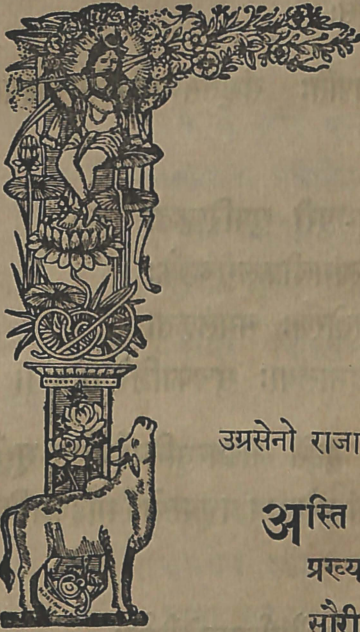 उग्रसेनो राजा
अस्ति
प्रख्य
सौरी